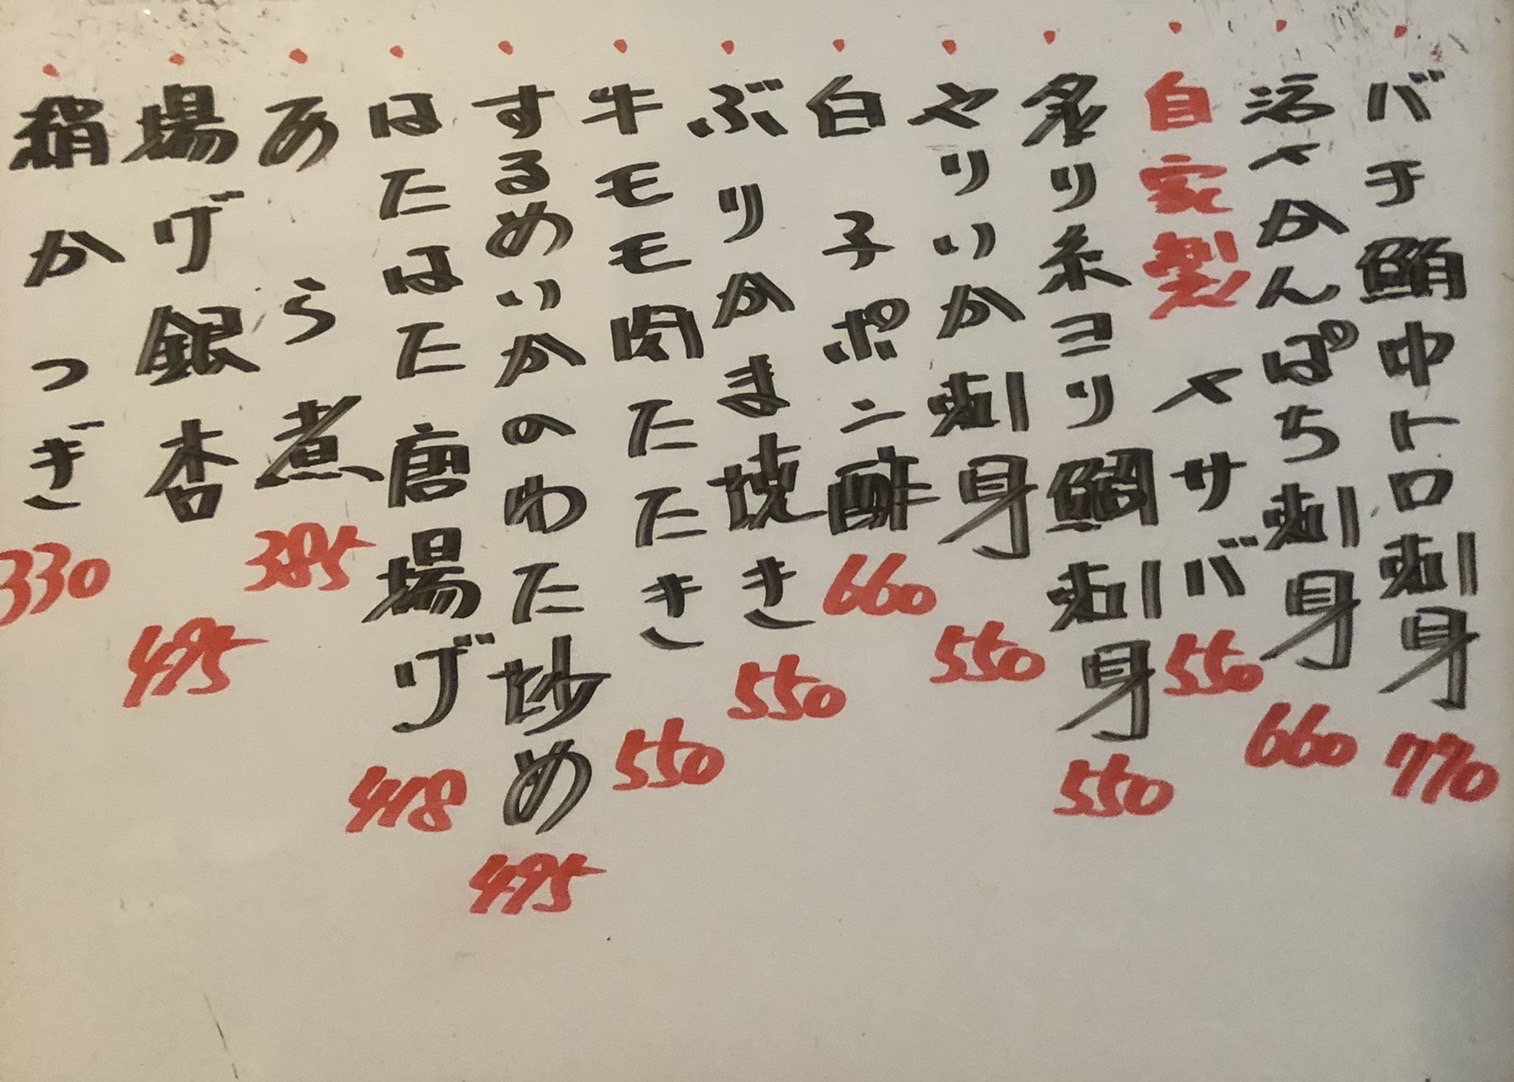 バチ鮪中トロ刺身 770
活〆かんぱち刺身 660
自家製 〆サバ 550
炙り糸ヨリ鯛刺身 550
やりいか刺身 550
白子ポン酢 660
ぶりかま焼き 550
牛モモ肉たたき 550
するめいかのわた炒め 495
はたはた唐揚げ 418
あら煮 385
揚げ銀杏 495
絹かつぎ 330